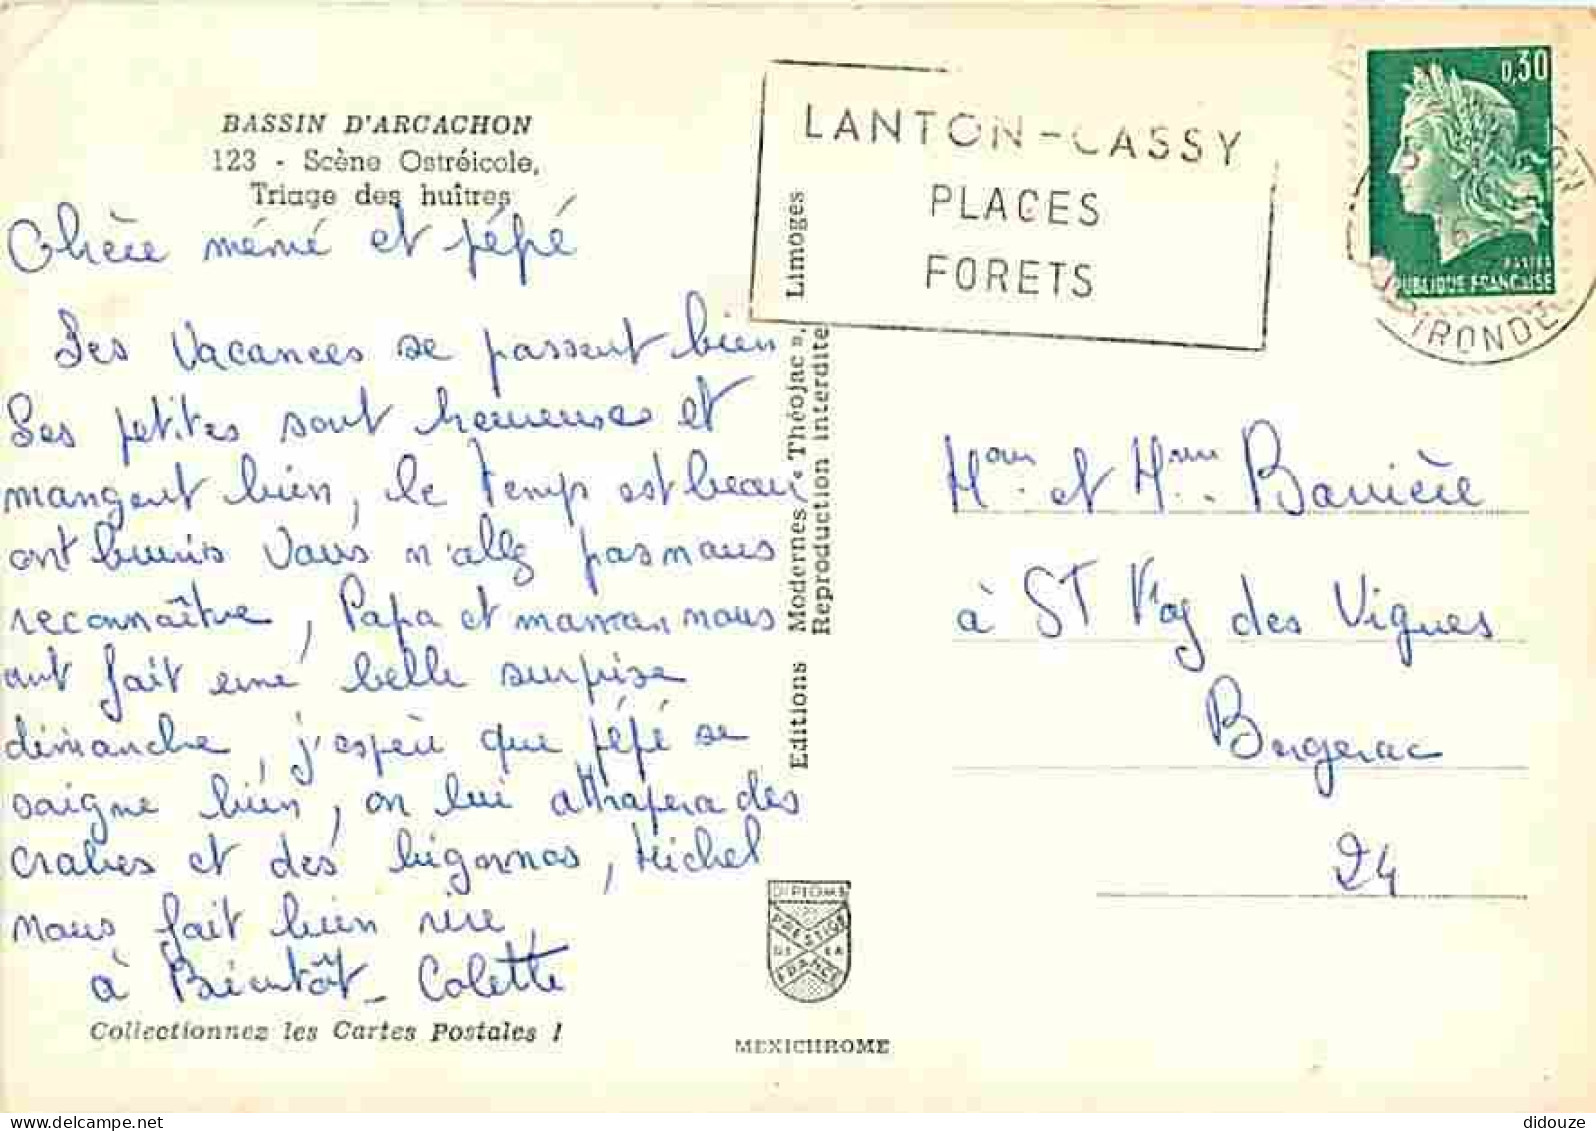 BASSIN D'ARCACHON
123 - Scène Ostréicole,
Triage des huîtres
Chère mémé et pépé
Les Vacances se passent bien
Les petites sont heureuses et
mangent bien, le temps est beau
ont bruni Vous n'allez pas nous
reconnaître, Papa et maman nous
ont fait une belle surprise
dimanche, j'espère que pépé se
saigne bien, on lui attrapera des
crabes et des bigornos, Michel
nous fait bien rire
à Bientôt - Colette
Collectionnez les Cartes Postales !
Editions Modernes « Théojac », Limoges
Reproduction interdite
DIPLOME
PRESTIGE
DE LA
FRANCE
MEXICHROME
LANTON-CASSY
PLACES
FORETS
0,30
POSTES
REPUBLIQUE FRANÇAISE
GIRONDE
et Barrière
à ST des Vignes
Bergerac
24
didouze